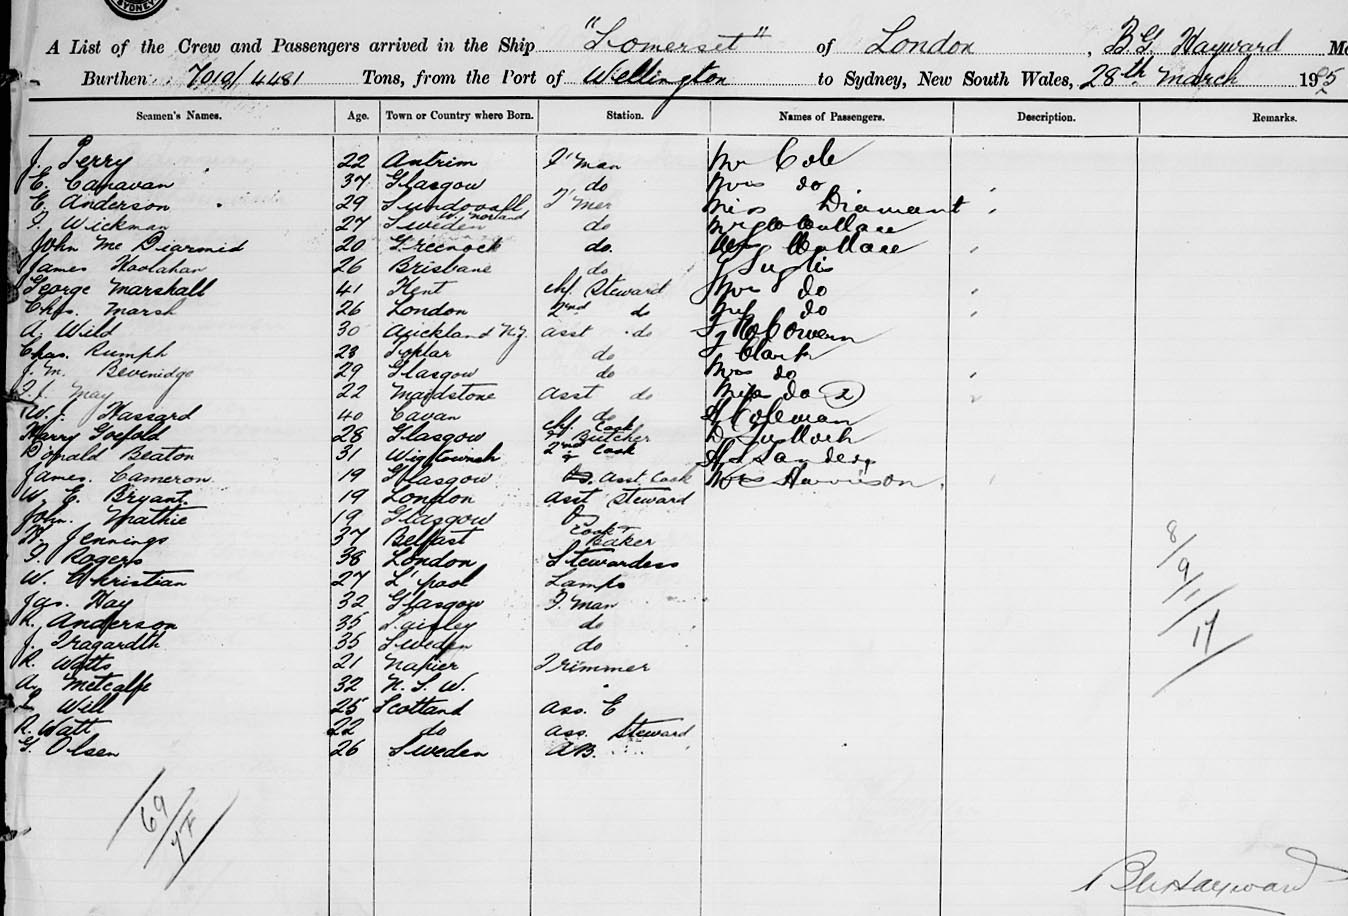 SYDNEY
A List of the Crew and Passengers arrived in the Ship "Somerset" of London, B.G. Hayward
Burthen 7,010/4481 Tons, from the Port of Wellington to Sydney, New South Wales, 28th March 19 5
Seamen's Names. Age. Town or Country where Born. Station. Names of Passengers. Description. Remarks.
J. Perry 22 Antrim F'man Mr Cole
E. Canavan 37 Glasgow do Mrs do
E. Anderson 29 Sundovall T'mer Miss Diamant
F. Wickman 27 Sweden W. Norland do Wallace
John Mc Diarmid 20 Greenock do. Wallace
James Hoolahan 26 Brisbane do
George Marshall 41 Kent chf Steward Mrs do
Chas. Marsh 26 London 2nd do do
A. Wild 30 Auckland N.Z. asst do
Chas. Rumph 23 Poplar do Clark
J. M. Bevenidge 29 Glasgow do Mrs do
May 22 Maidstone asst do Miss do 2
W. J. Hassard 40 Cavan do H Coleman
Harry 28 Glasgow chf Cook & Butcher D
Donald Beaton 31 2nd Cook Sanders
James. Cameron 19 Glasgow Asst Cook Harrison
W. E. Bryant. 19 London Asst Steward
John. Mathie 19 Glasgow
Jennings 37 Belfast Cook & Baker
F. Rogers 38 London Stewardess
W. Christian 27 L'pool Lamps
Jas. Hay 32 Glasgow F. Man
R. Anderson 35 Paisley do
J. Tragardth 35 Sweden do
R. Watts 21 Napier Trimmer
A. Metcalfe 32 N. S. W.
Will 25 Scotland Ass. E
R. Watt 22 do Ass. Steward
G. Olsen 26 Sweden AB.
8/
9/
1/
17
69/
Hayward